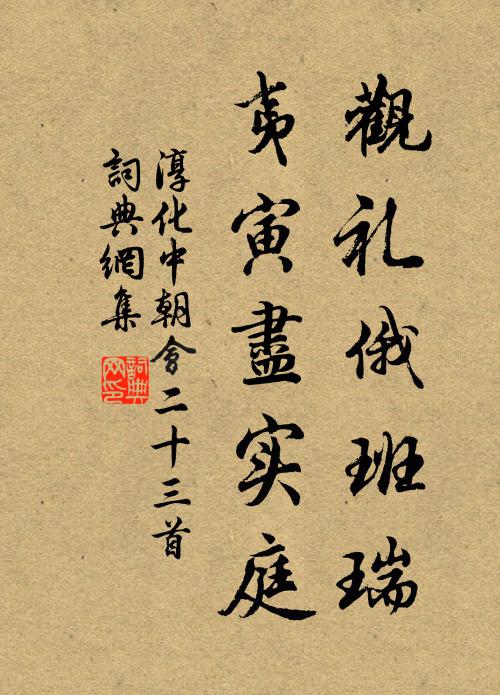 觀礼俄班瑞
夷寅盡实庭
淳化中朝會二十三首
詞典網集
詞典网印